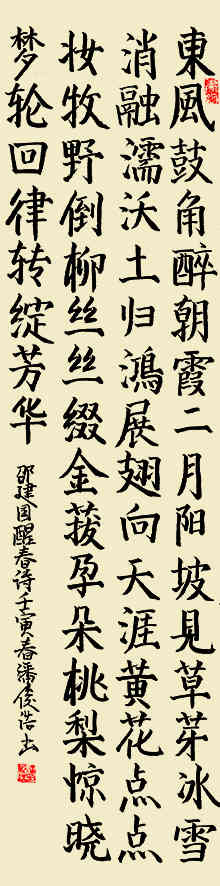 東風鼓角醉朝霞二月阳坡見草芽冰雪
消融濡沃土归鴻展翅向天涯黄花点点
妆牧野倒柳丝丝缀金菝孕朵桃梨惊晓
梦轮回律转绽芳华
邵建国醒春诗壬寅春潘俊浩书